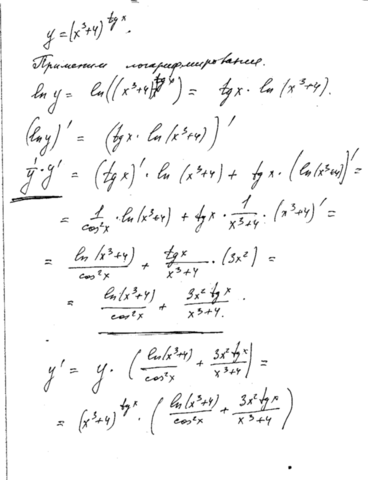 y = (x³+4)^{tg x}.
Применим логарифмирование.
ln y = ln((x³+4)^{tg x}) = tg x · ln(x³+4).
(ln y)' = (tg x · ln(x³+4))'
1/y · y' = (tg x)' · ln(x³+4) + tg x · (ln(x³+4))' =
= 1/cos²x · ln(x³+4) + tg x · 1/(x³+4) · (x³+4)' =
= ln(x³+4)/cos²x + tg x/(x³+4) · (3x²) =
= ln(x³+4)/cos²x + 3x² tg x/(x³+4).
y' = y · (ln(x³+4)/cos²x + 3x² tg x/(x³+4)) =
= (x³+4)^{tg x} · (ln(x³+4)/cos²x + 3x² tg x/(x³+4))